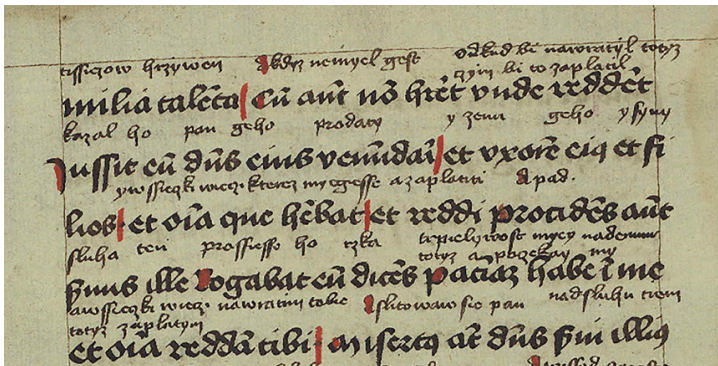 tissiczow hrzywen A kdyz nemyel gest odkud bi nawratyl totyz
czym bi to zaplatil
milia talēta Cū aūt nō hr̄et vnde reddēt
kazal ho pan geho prodaty y zenu geho y syny
Jussit eū dn̄s eius venūdari et vxorē eiꝰ et fi
ywssieczki wieczi kterez myegesse a zaplatiti A pad.
lios et oīa que hēbat et reddi procidēs aūt
sluha ten prossiesse ho rzka trpielywost myey nademnu
totyz a poczekay my
ẜuus ille Rogabat eū dicēs paciaz habe ī me
awssieczki wieczi nawratim tobie Slitowaw sie pan nad sluhu tiem
totyz zaplatym
et oīa reddā tibi misertꝰ at̄ dn̄s ẜui illiꝰ